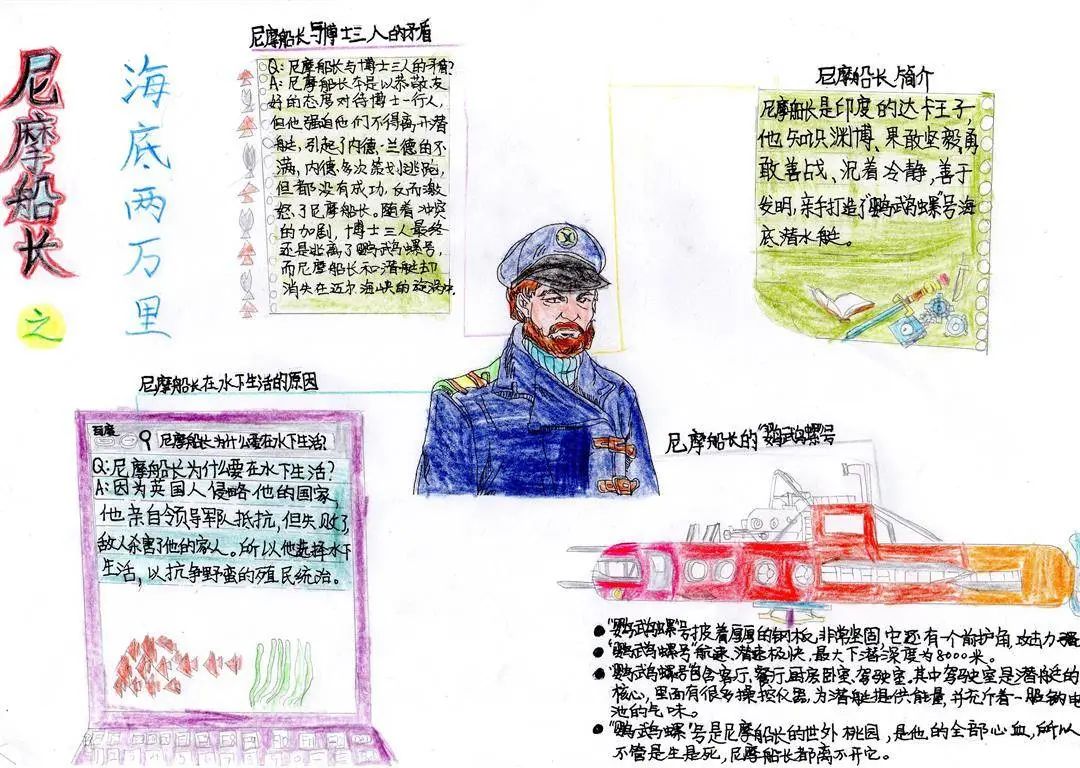 尼摩船长
之
海底两万里
尼摩船长与博士三人的矛盾
Q: 尼摩船长与博士三人的矛盾?
A: 尼摩船长本是以恭敬友
好的态度对待博士一行人,
但他强迫他们不得离开潜
艇,引起了内德·兰德的不
满,内德多次策划逃跑,
但都没有成功,反而激
怒了尼摩船长。随着冲突
的加剧,博士三人最终
还是逃离了鹦鹉螺号,
而尼摩船长和潜艇却
消失在迈尔海峡的旋涡中.
尼摩船长简介
尼摩船长是印度的达卡王子,
他知识渊博、果敢坚毅,勇
敢善战、沉着冷静,善于
发明,亲手打造了"鹦鹉螺"号海
底潜水艇。
尼摩船长在水下生活的原因
百度
尼摩船长为什么要在水下生活?
Q:尼摩船长为什么要在水下生活?
A:因为英国人侵略他的国家,
他亲自领导军队抵抗,但失败了,
敌人杀害了他的家人。所以他选择水下
生活,以抗争野蛮的殖民统治。
尼摩船长的"鹦鹉螺"号
●"鹦鹉螺"号披着厚厚的钢板,非常坚固,它还有一个前护角,攻击力强
●"鹦鹉螺号"航速、潜速极快,最大下潜深度为8000米。
●"鹦鹉螺号"包含客厅、餐厅、厨房、卧室、驾驶室。其中驾驶室是潜艇的
核心,里面有很多操控仪器,为潜艇提供能量,并充斥着一股钠电
池的气味。
●"鹦鹉螺"号是尼摩船长的世外桃园,是他的全部心血,所以
不管是生是死,尼摩船长都离不开它。